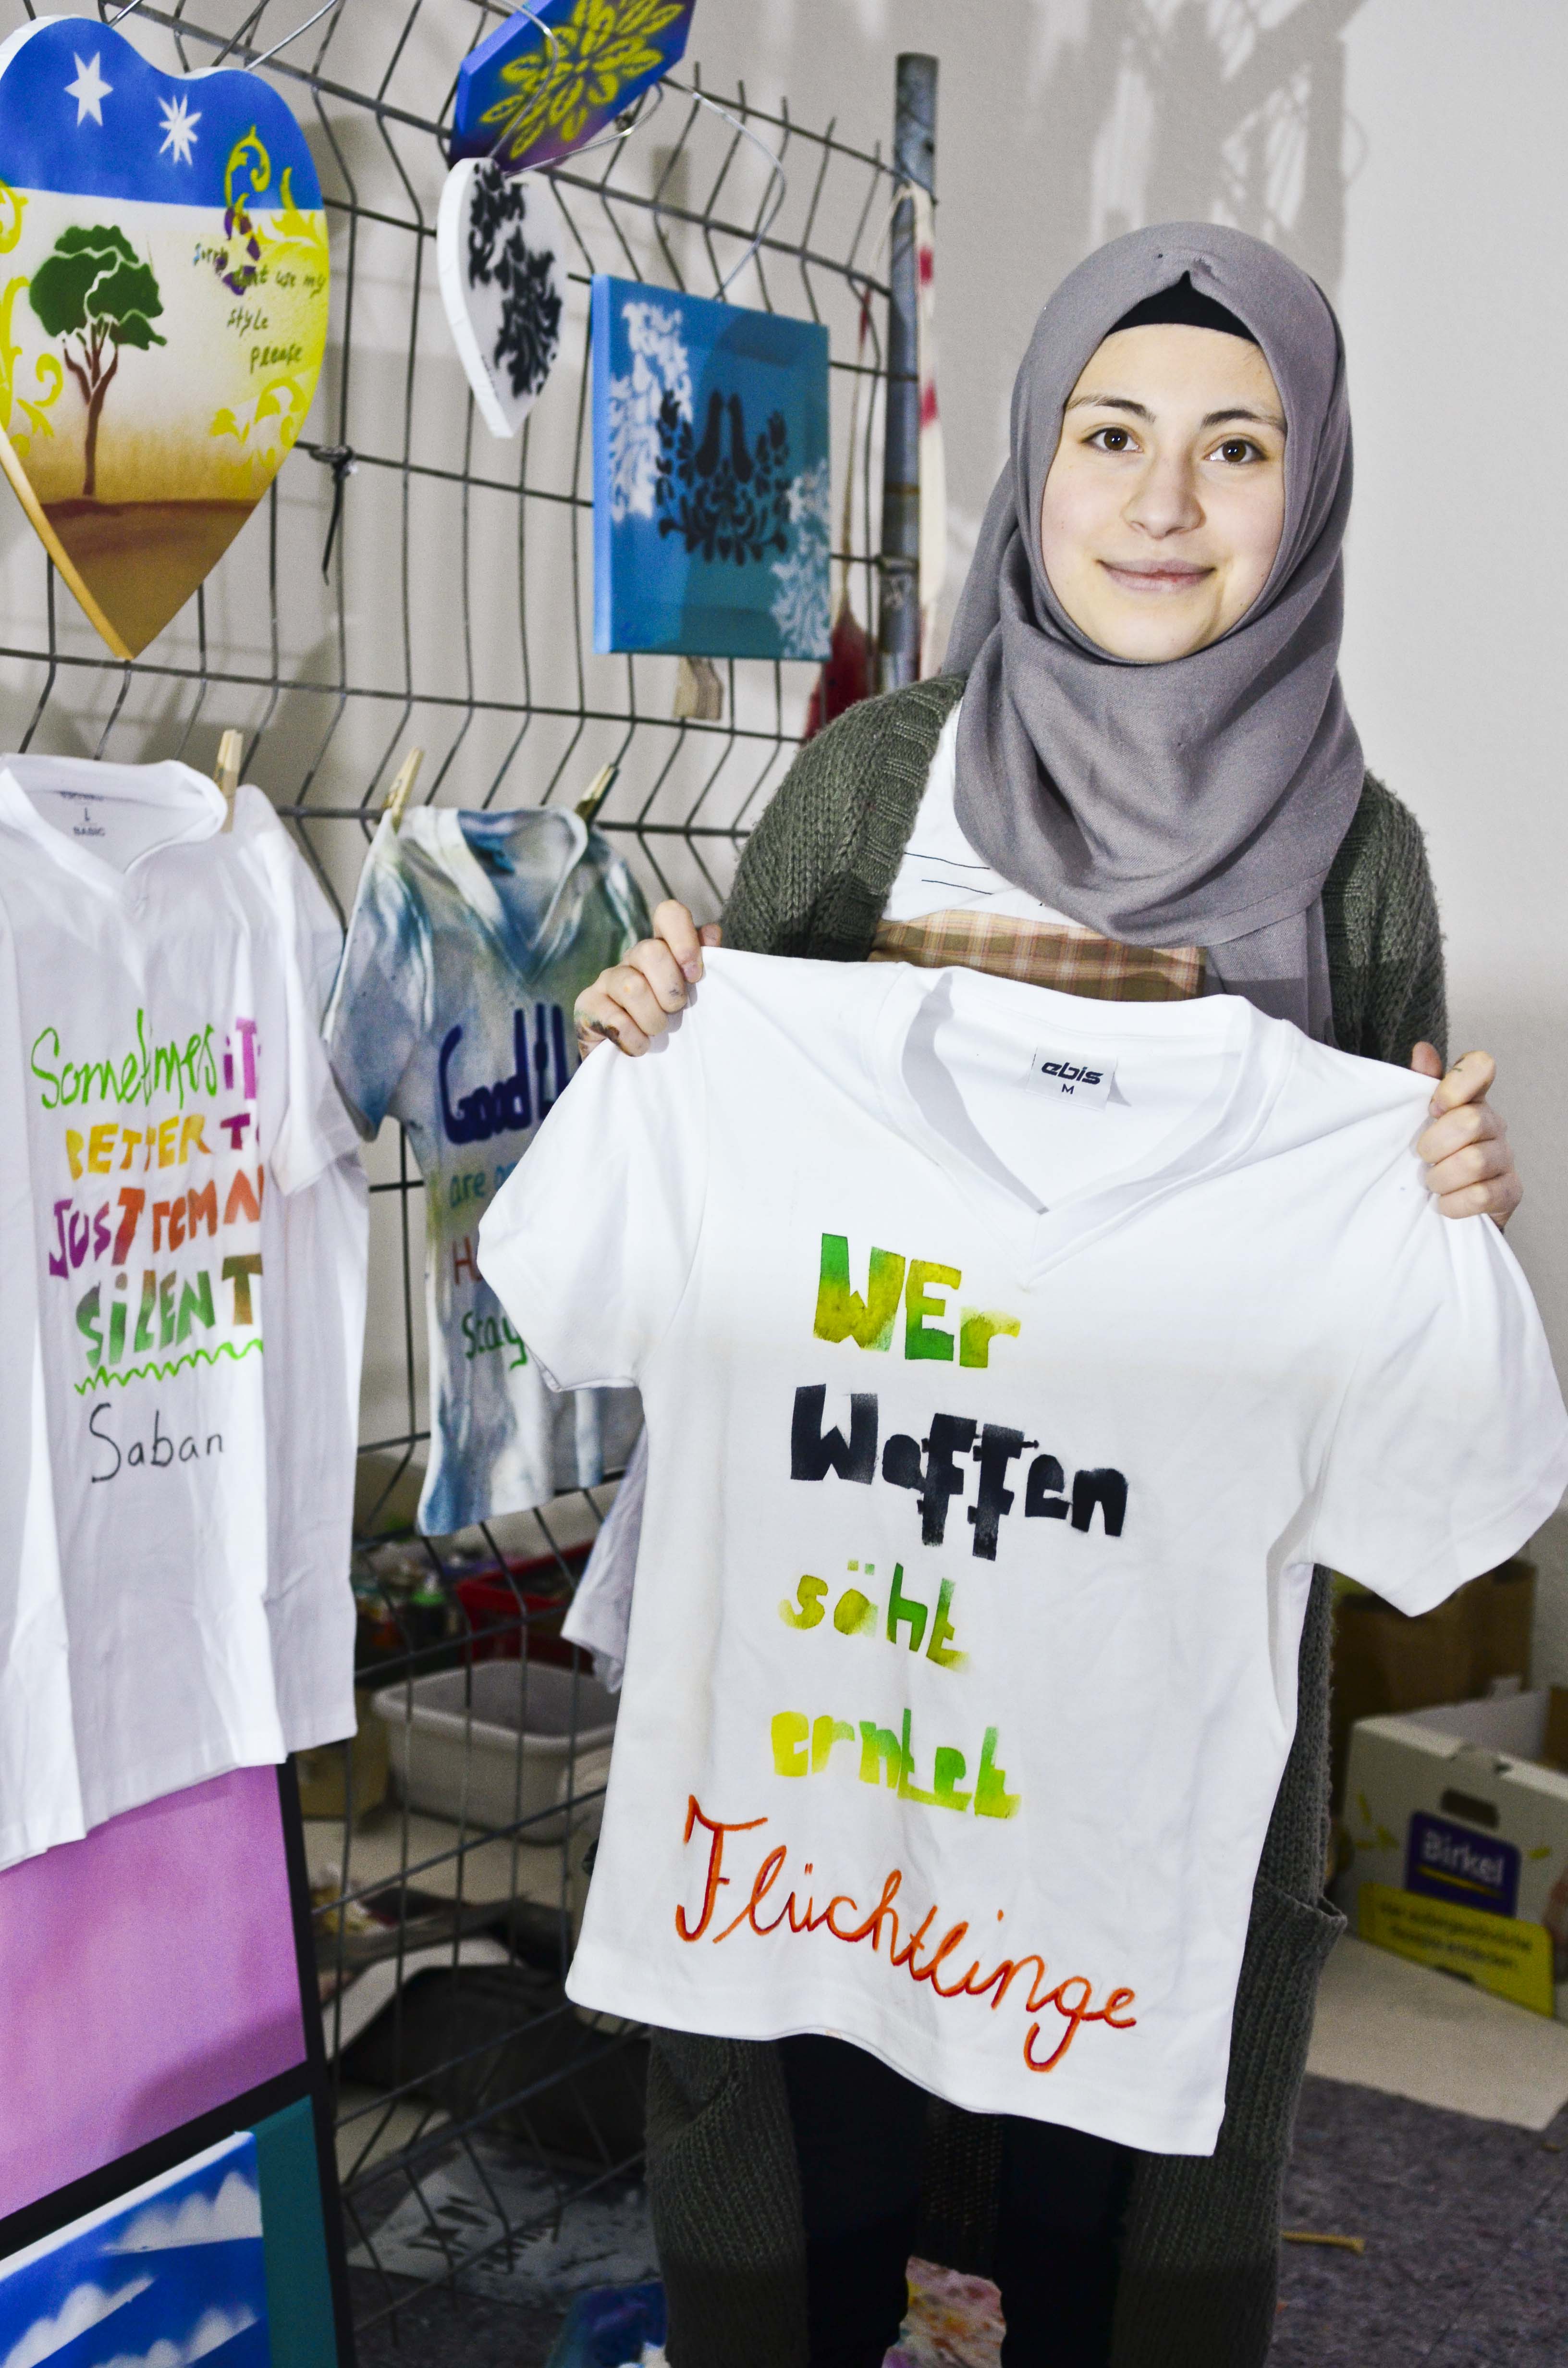 sorry dont use my
style
please
L
BASIC
Sometimes iT
BETTER T
JUST remA
SiLENT
Saban
Good
are
Stay
ebis
M
WEr
Waffen
säht
erntet
Flüchtlinge
Birkel